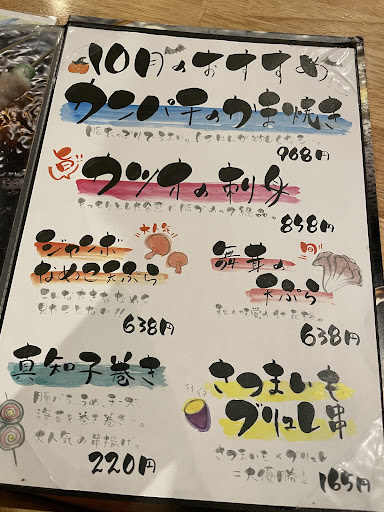 10月のおすすめ
カンパチのかま焼き
968円
カツオの刺身
858円
ジャンボ
なめこ天ぷら
638円
舞茸の
天ぷら
638円
真知子巻き
豚バラ、うめ、チーズ
海苔を巻き巻き…。
大人気の串揚げっ。
220円
さつまいも
ブリュレ串
さつまいも×ブリュレ
=大優勝!
165円